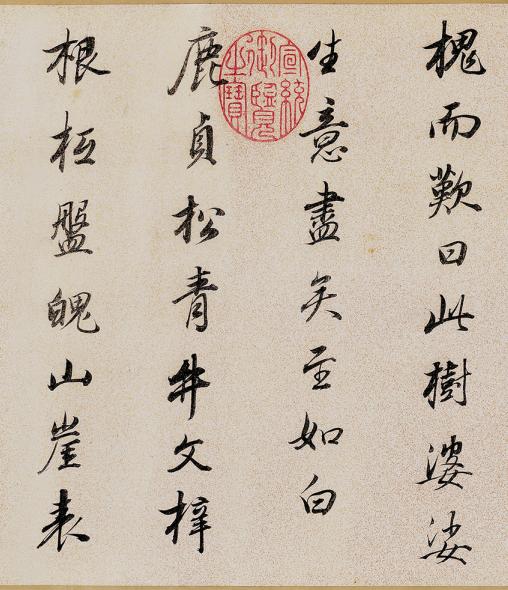 槐而歎曰此樹婆娑
生意盡矣至如白
鹿貞松青牛文梓
根柢盤魄山崖表
宣統御覽之寶